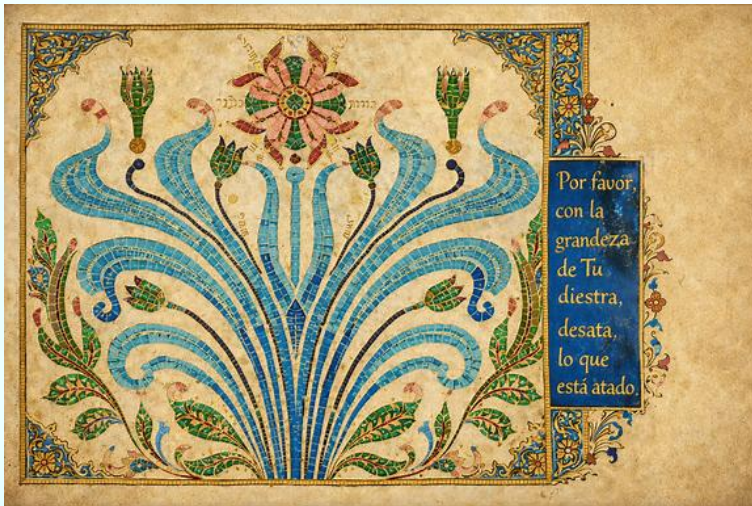 Por favor,
con la
grandeza
de Tu
diestra,
desata,
lo que
está atado.